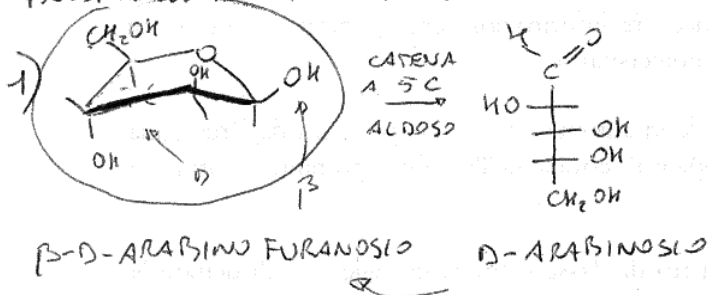 1)
CH₂OH
O
OH
OH
OH
D
β
CATENA
A 5C
ALDOSO
H
O
C
HO
OH
OH
CH₂OH
β-D-ARABINO FURANOSIO
D-ARABINOSIO